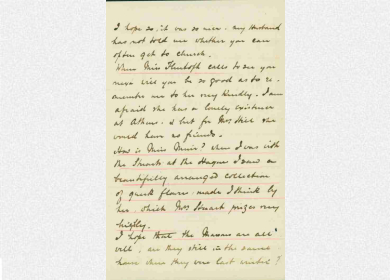 I hope so; it was so near. My Husband
has not told me whether you can
often get to church.
When Miss calls to see you
next will you be so good as to re-
member me to her very kindly. I am
afraid she has a lonely existence
at Athens. & but for Mrs Skell she
would have no friends.
How is Miss Muir? When I was with
the Stuarts at the Hague I saw a
beautifully arranged collection
of greek flowers made I think by
her which Mrs Stuart prizes very
highly.
I hope that the Masons are all
well, are they still in the same
house where they were last winter?